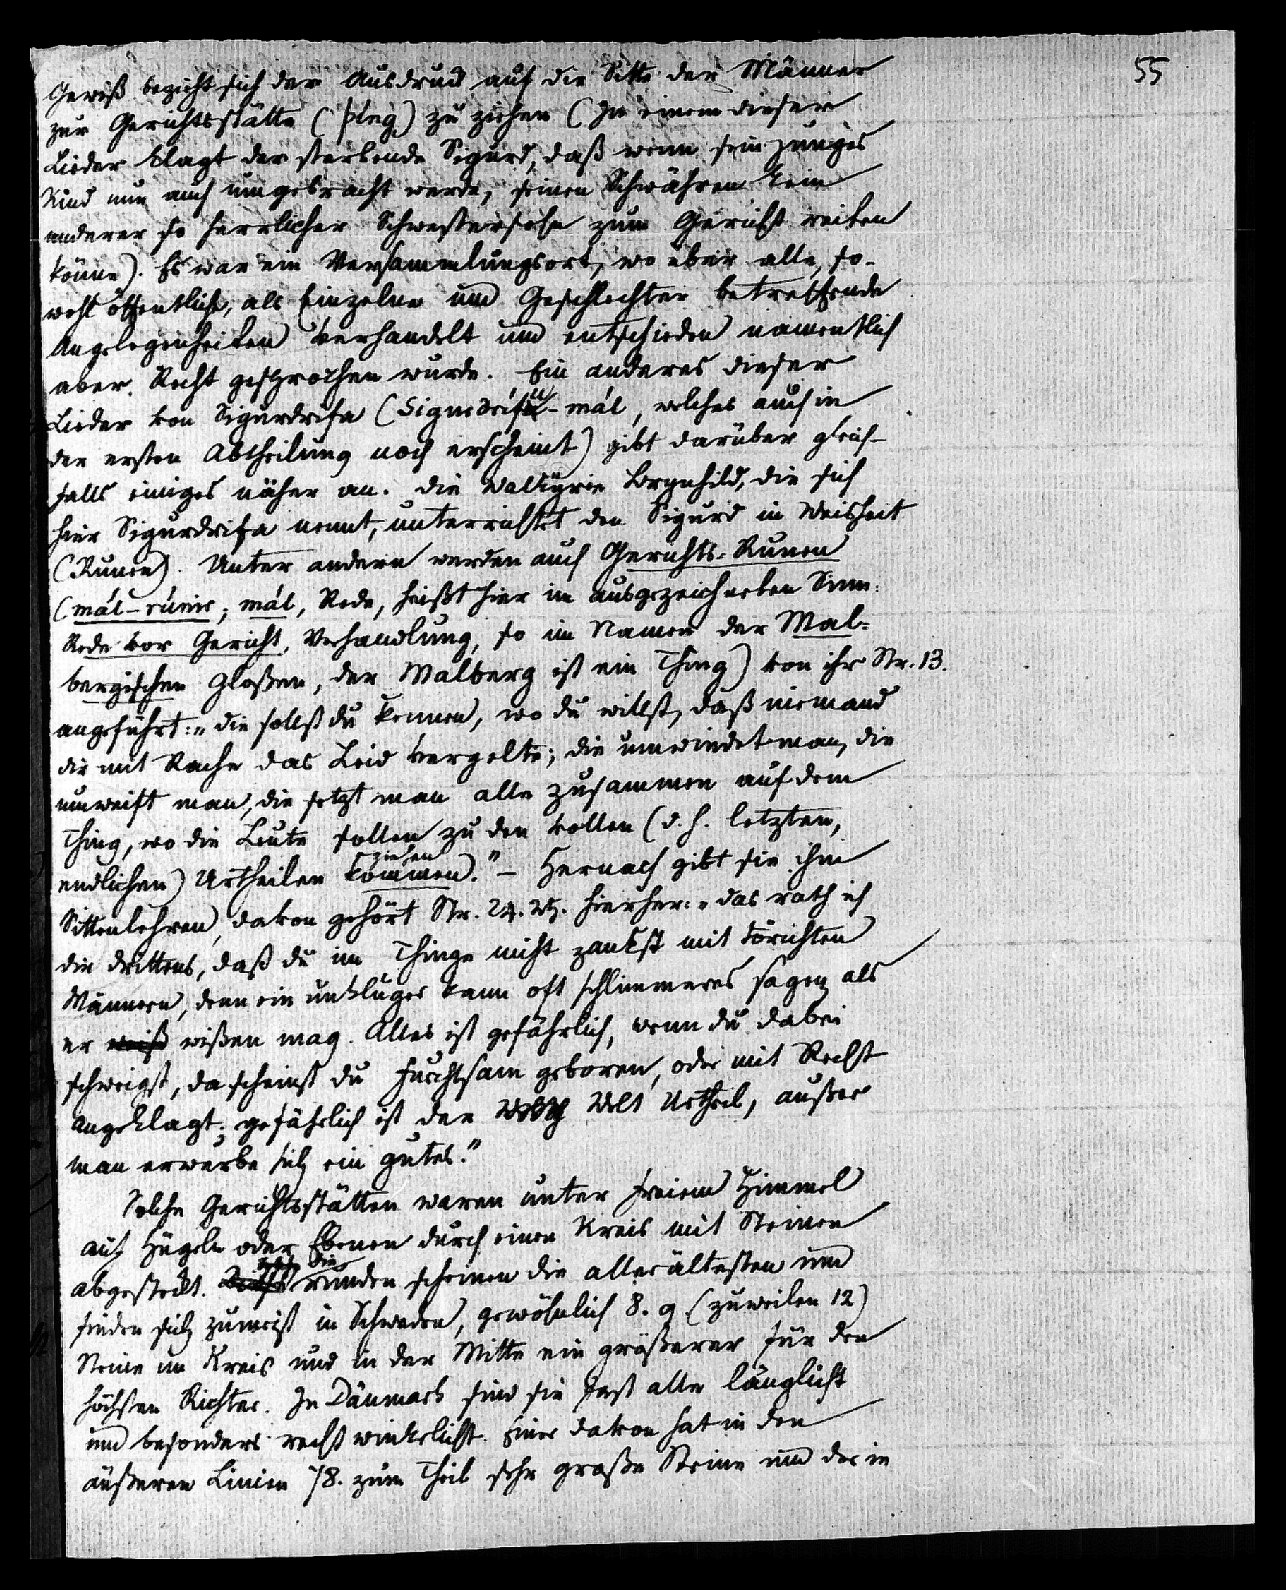 55
Gewiß bezieht sich der Ausdruck auf die Sitte der Männer
zur Gerichtsstätte (þing) zu ziehen (In einem dieser
Lieder klagt der sterbende Sigurd, daß wenn sein junges
Kind nun auch umgebracht werde, seinen Schwähren kein
anderer so herrlicher Schwestersohn zum Gericht reiten
könne). Es war ein Versammlungsort, wo über alle, so-
wohl öffentliche, als Einzelne und Geschlechter betreffende
Angelegenheiten verhandelt und entschieden namentlich
aber Recht gesprochen wurde. Ein anderes dieser
Lieder von Sigurdrifa (Sigurdrífu-mál, welches auch in
der ersten Abtheilung noch erscheint) gibt darüber gleich-
falls einiges näher an. Die Valkyrie Brynhild, die sich
hier Sigurdrifa nennt, unterrichtet den Sigurd in Weisheit
(Runen). Unter andern werden auch Gerichts-Runen
(mál-rúnir; mál, Rede, heißt hier im ausgezeichneten Sinn:
Rede vor Gericht, Verhandlung, so im Namen der Mal-
bergischen Gloßen, der Malberg ist ein Thing) von ihr Str. 13.
angeführt: „die sollst du kennen, wo du willst, daß niemand
dir mit Rache das Leid vergelte; die umwindet man, die
umweift man, die setzt man alle zusammen auf dem
Thing, wo die Leute sollen zu den vollen (d. h. letzten,
endlichen) Urtheilen kommen ziehen.“ – Hernach gibt sie ihm
Sittenlehren, davon gehört Str. 24. 25. hierher: „das rath ich
dir drittens, daß du im Thinge nicht zankst mit törichten
Männern, denn ein unkluger kann oft schlimmeres sagen als
er weiß wißen mag. Alles ist gefährlich, wenn du dabei
schweigst, da scheinst du furchtsam geboren, oder mit Recht
angeklagt; gefährlich ist der Welt Urtheil, außer
man erwerbe sich ein gutes.“
Solche Gerichtsstätten waren unter freiem Himmel
auf Hügeln oder Ebenen durch einen Kreis mit Steinen
abgesteckt. Die runden scheinen die allerältesten und
finden sich zumeist in Schweden, gewöhnlich 8. 9 (zuweilen 12)
Steine im Kreis und in der Mitte ein größerer für den
höchsten Richter. In Dänmark sind sie fast alle länglicht
und besonders recht winklicht. Einer davon hat in den
äußeren Linien 78. zum Theil sehr große Steine und der in